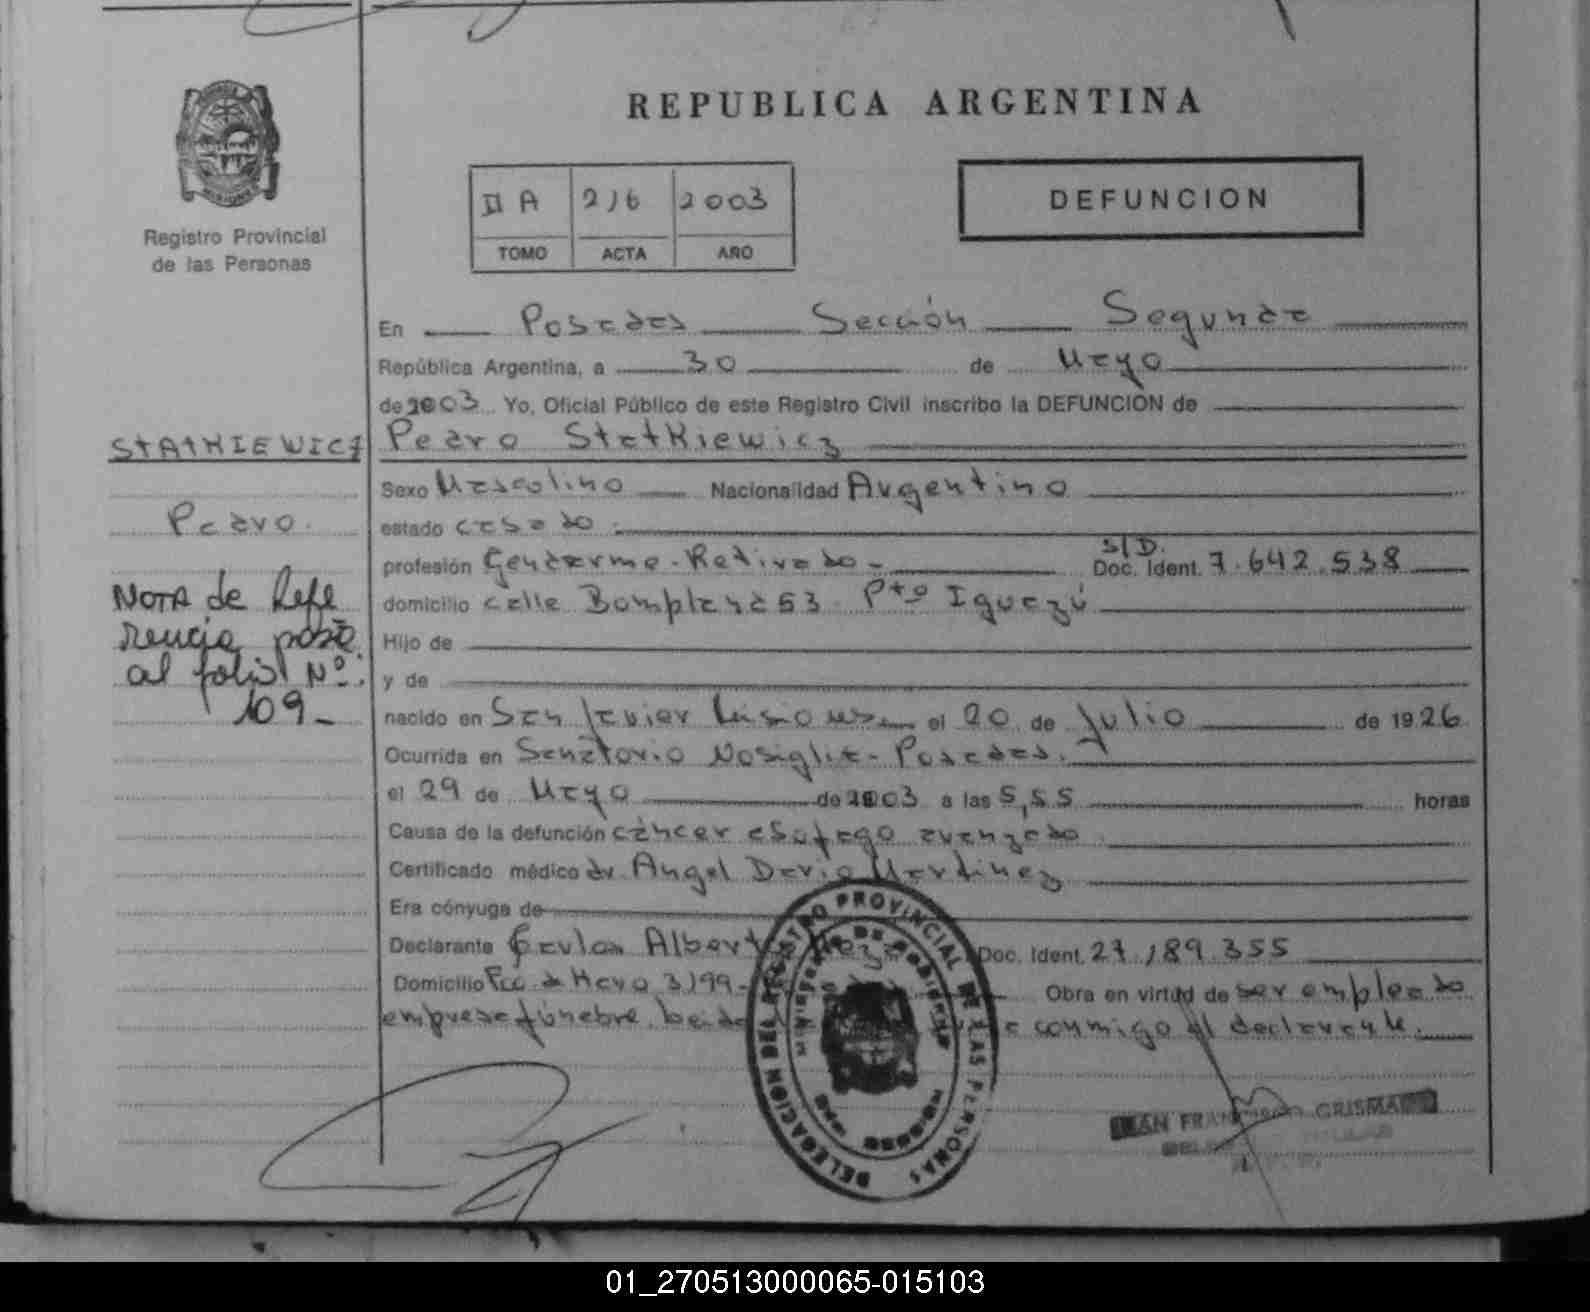 REPUBLICA ARGENTINA
Registro Provincial
de las Personas
II A 216 2003
TOMO ACTA AÑO
DEFUNCION
En Posadas Sección Segunda
República Argentina, a 30 de Mayo
de 2003 Yo, Oficial Público de este Registro Civil inscribo la DEFUNCION de
STATKIEWICZ
Pedro Statkiewicz
Sexo Masculino Nacionalidad Argentino
Pedro.
estado casado.
profesión Gendarme. Retirado.- S/D. Doc. Ident. 7.642.538
NOTA de Refe
rencia pasa
al folio Nº:
109-
domicilio calle Bompland 53 Pto Iguazú
Hijo de
y de
nacido en San Javier Misiones. el 20 de Julio de 1926
Ocurrida en Sanatorio Nosiglia- Posadas.
el 29 de Mayo de 2003 a las 5,55 horas
Causa de la defunción cáncer esofago avanzado
Certificado médico dr. Angel Dario Martinez
Era cónyuge de
Declarante Carlos Doc. Ident. 27.189.355
Domicilio de Haro 3199- Obra en virtud de ser empleado
empresa fúnebre. conmigo el declarante.
DELEGACION DEL REGISTRO PROVINCIAL DE LAS PERSONAS
01_270513000065-015103